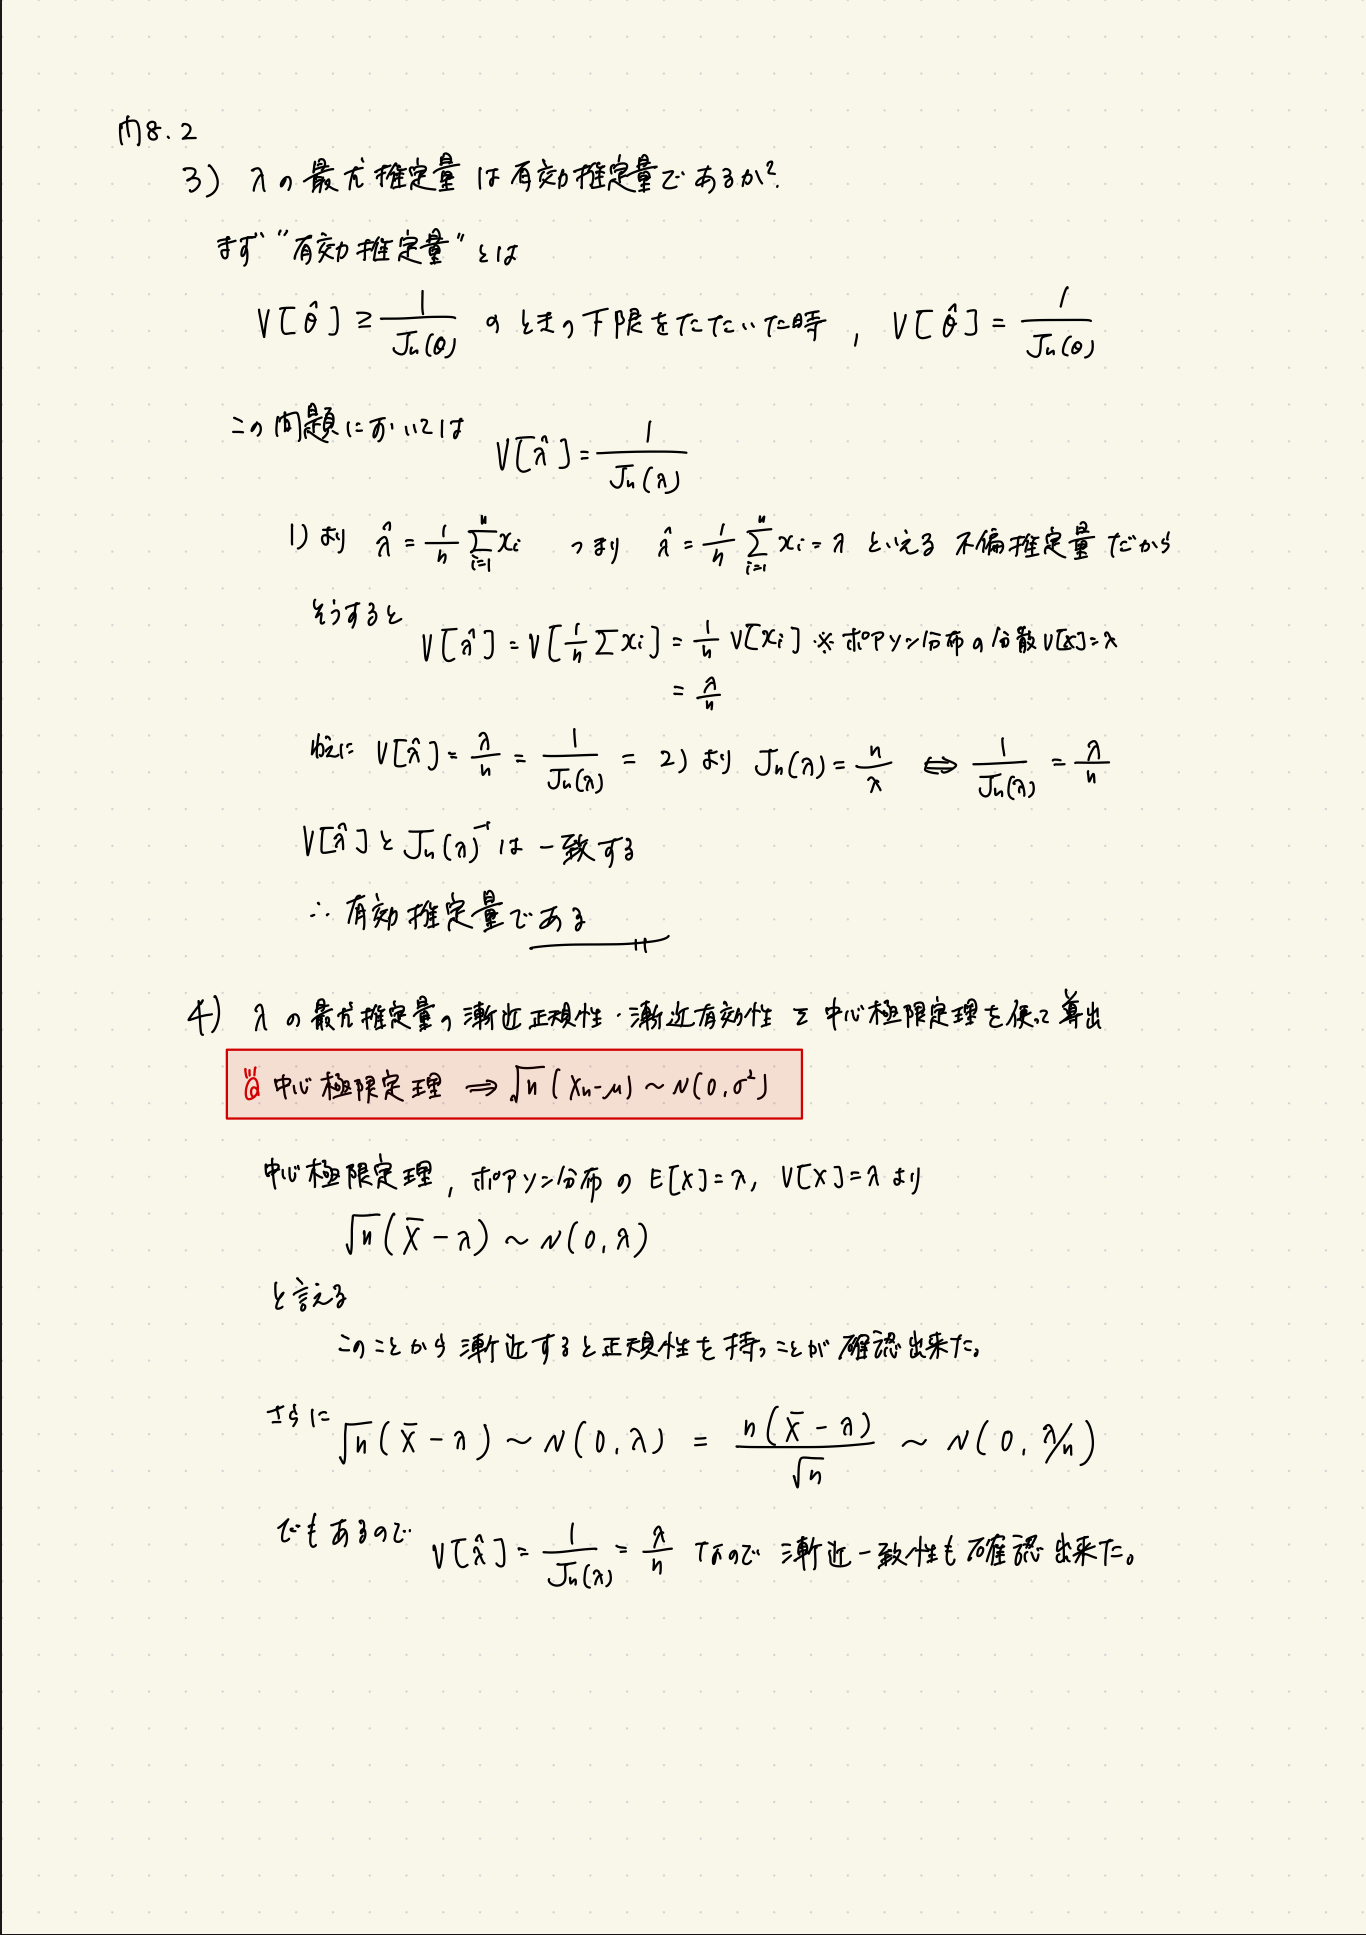 問8.2
3) λの最尤推定量は有効推定量であるか?
まず"有効推定量"とは
V[θ̂] ≥ 1/Jn(θ) のときの下限をたたいた時, V[θ̂] = 1/Jn(θ)
この問題においては V[λ̂] = 1/Jn(λ)
1)より λ̂ = 1/n Σ_{i=1}^{n} xi つまり λ̂ = 1/n Σ_{i=1}^{n} xi = λ といえる 不偏推定量だから
そうすると V[λ̂] = V[1/n Σ xi] = 1/n V[xi] ※ポアソン分布の分散V[x]=λ
= λ/n
ゆえに V[λ̂] = λ/n = 1/Jn(λ) = 2)より Jn(λ) = n/λ ⇔ 1/Jn(λ) = λ/n
V[λ̂]とJn(λ)⁻¹は一致する
∴ 有効推定量である
4) λの最尤推定量の漸近正規性・漸近有効性を中心極限定理を使って導出
中心極限定理 ⇒ √n(Xn-μ) ~ N(0, σ²)
中心極限定理, ポアソン分布の E[X]=λ, V[X]=λより
√n(X̄-λ) ~ N(0, λ)
と言える
このことから漸近すると正規性を持つことが確認出来た。
さらに √n(X̄-λ) ~ N(0, λ) = n(X̄-λ)/√n ~ N(0, λ/n)
でもあるので V[λ̂] = 1/Jn(λ) = λ/n なので漸近一致性も確認出来た。